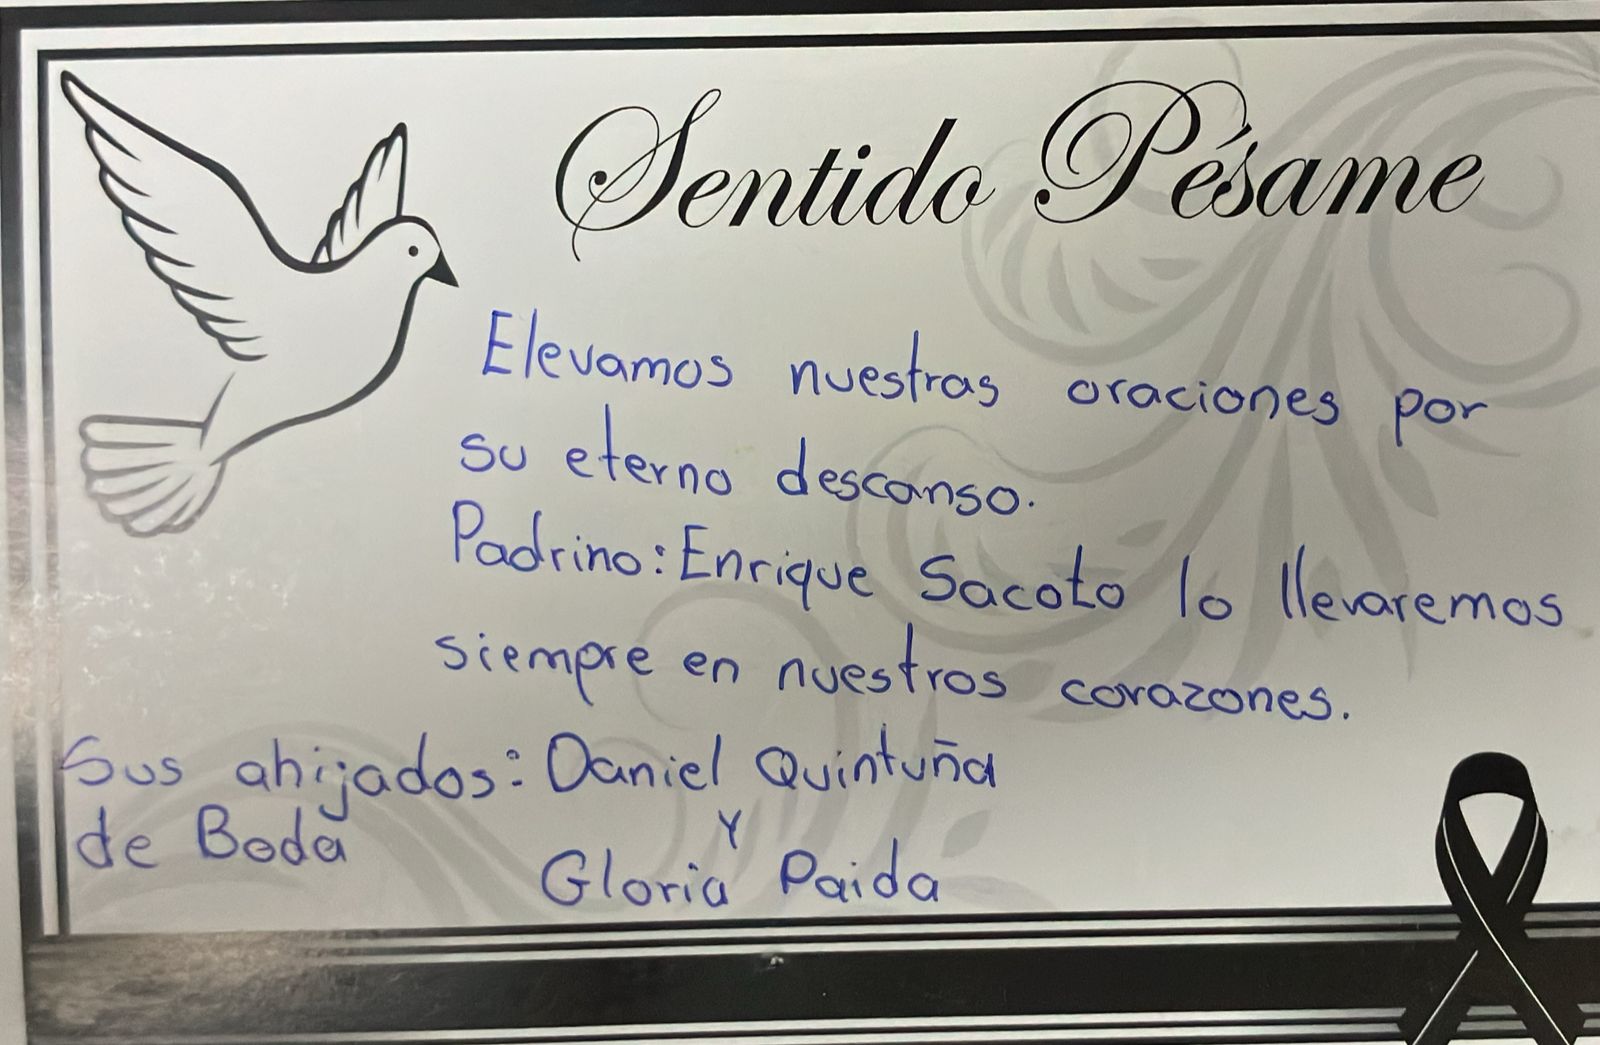 Sentido Pésame
Elevamos nuestras oraciones por
su eterno descanso.
Padrino: Enrique Sacoto lo llevaremos
siempre en nuestros corazones.
Sus ahijados: Daniel Quintuña
de Boda Y
Gloria Paida